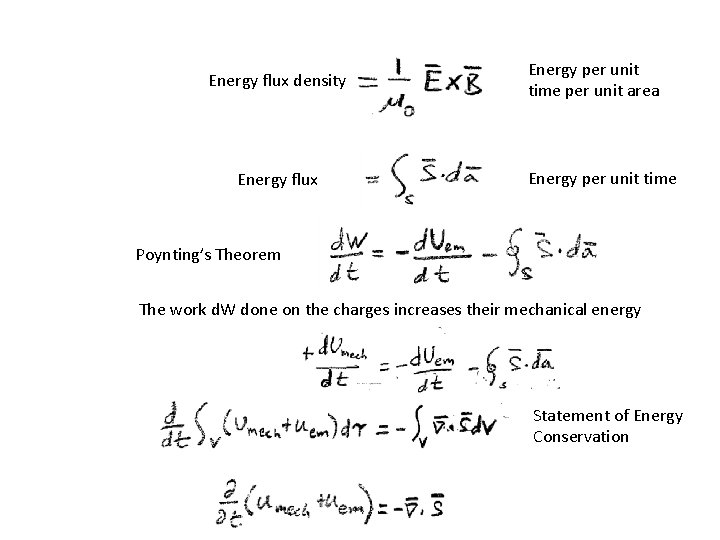 Energy flux density = 1/μ₀ E̅ x B̅ Energy per unit
time per unit area
Energy flux = ∫ₛ S̅·da̅ Energy per unit time
Poynting’s Theorem dW/dt = - dUem/dt - ∮ₛ S̅·da̅
The work dW done on the charges increases their mechanical energy
+ dUmech/dt = - dUem/dt - ∮ₛ S̅·da̅
d/dt ∫ᵥ (Umech + uem) dτ = - ∫ᵥ ∇̅·S̅ dV Statement of Energy
Conservation
∂/∂t (umech + uem) = - ∇̅·S̅